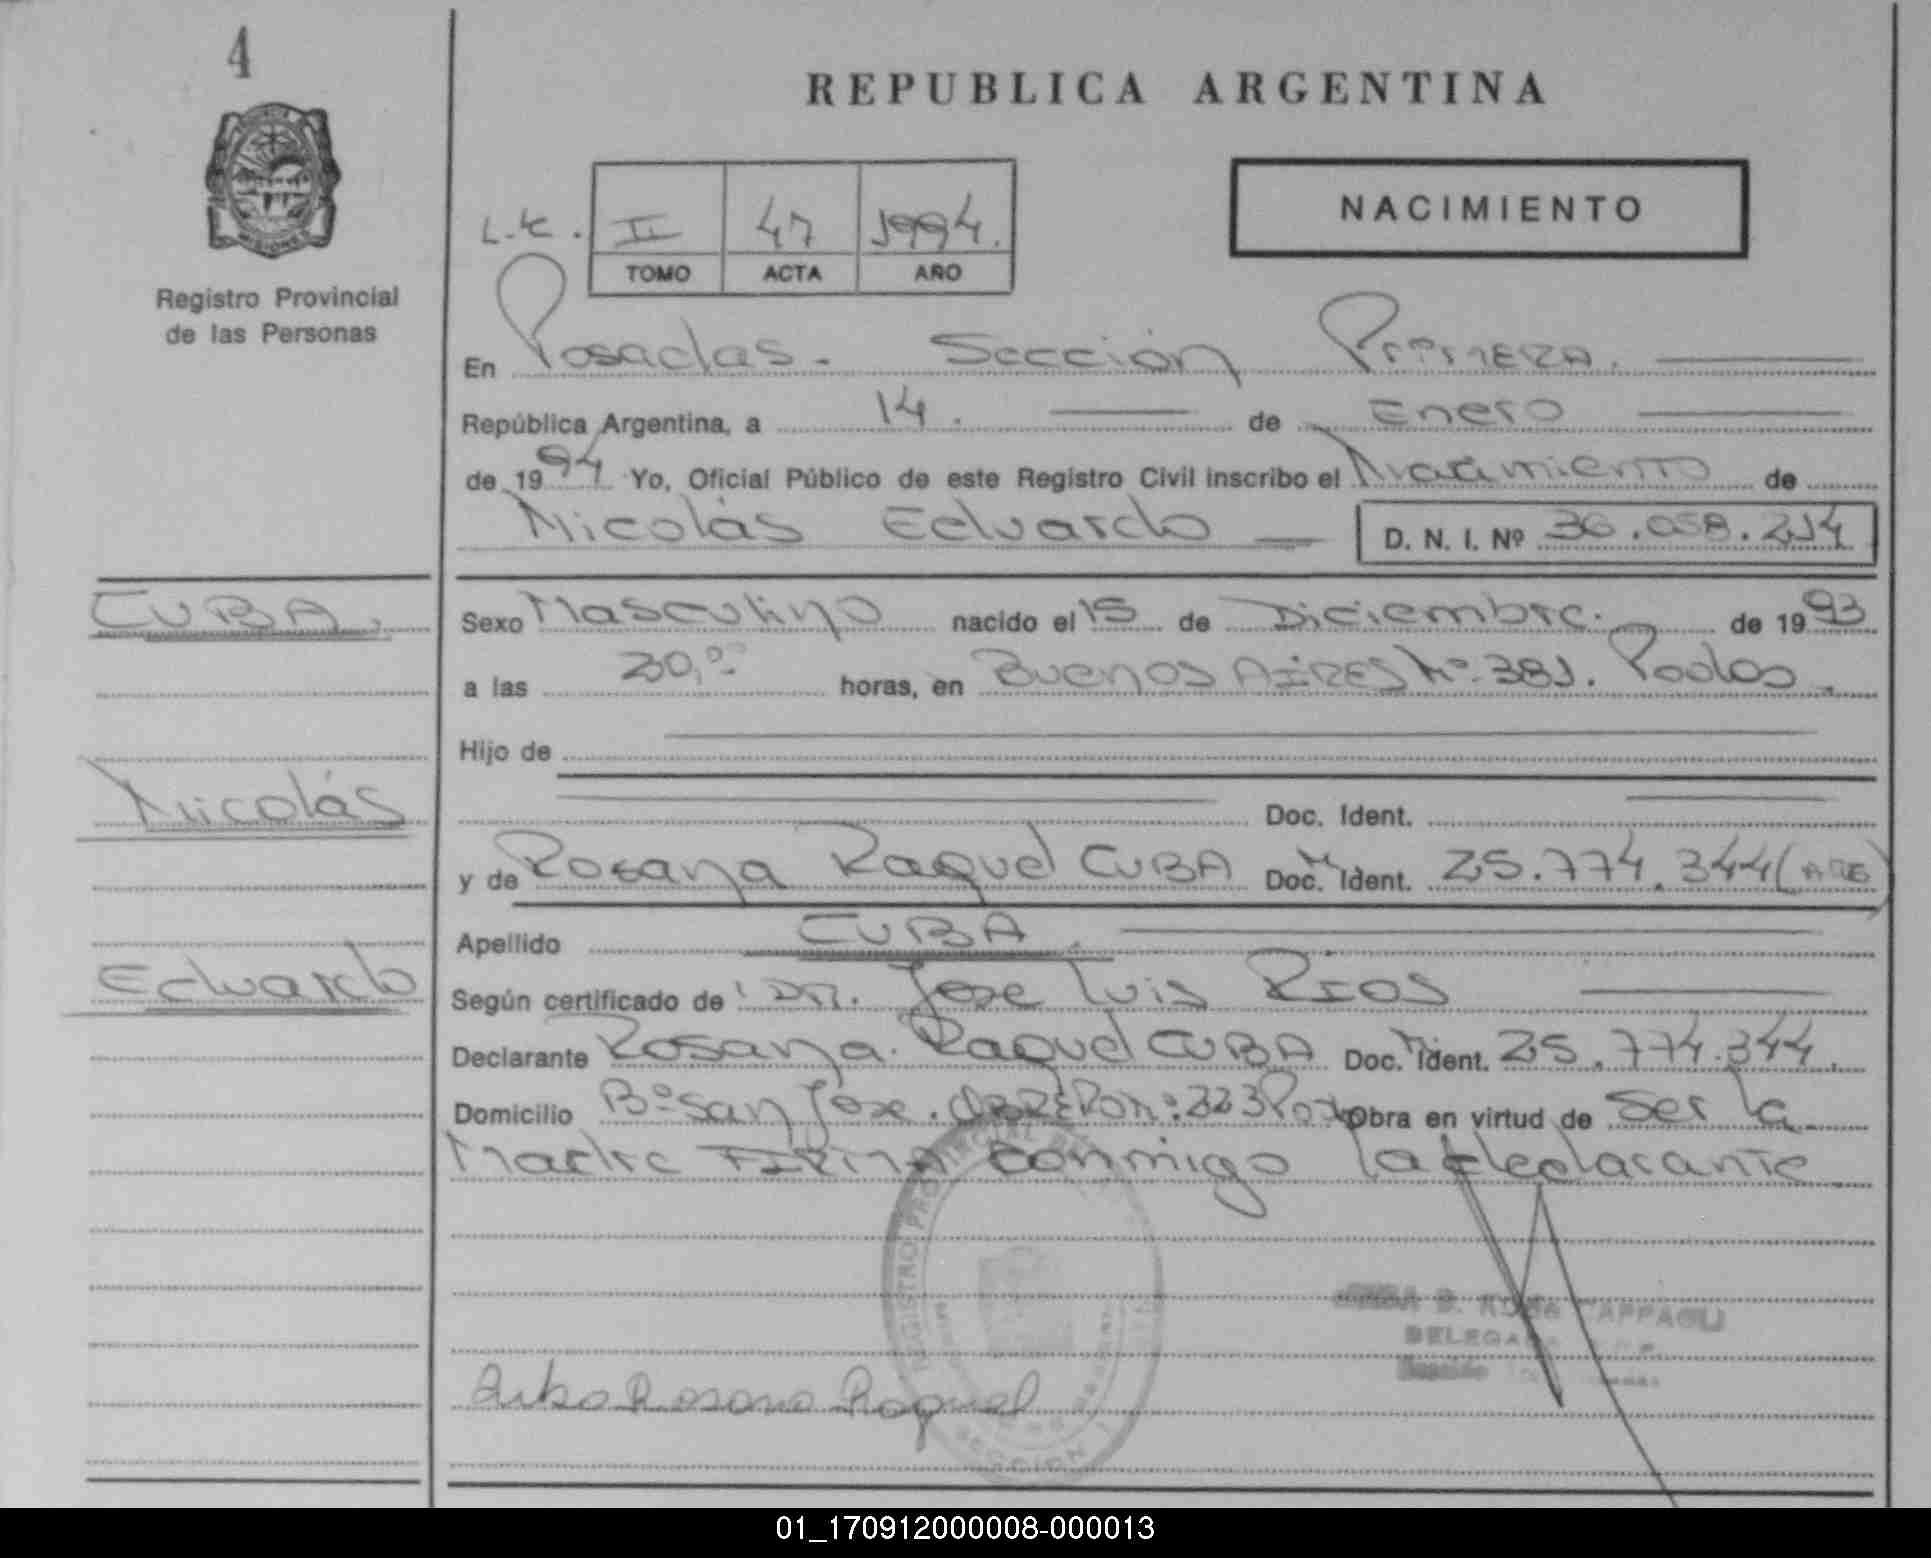 4
REPUBLICA ARGENTINA
MISIONES
Registro Provincial
de las Personas
II 47 1994.
TOMO ACTA AÑO
NACIMIENTO
En Posadas. Sección Primera.
República Argentina, a 14. de Enero
de 1994 Yo, Oficial Público de este Registro Civil inscribo el Nacimiento de
Nicolás Eduardo D. N. I. Nº 36.058.214
CUBA.
Sexo Masculino nacido el 15 de Diciembre. de 1993
a las 20,00 horas, en Buenos Aires Nº 381. Posdas.
Hijo de
Nicolás
Doc. Ident.
y de Rosana Raquel CUBA Doc. Ident. 25.774.344 (ARG)
Apellido CUBA.
Eduardo
Según certificado de: DR. Jose Luis Rios
Declarante Rosana Raquel CUBA Doc. Ident. 25.774.344.
Domicilio Bº San Jose. Nº 223 Obra en virtud de Ser la
Madre FIRMA conmigo la declarante
REGISTRO PROVINCIAL DE
SECCION 1
ROSA CAPPAGLI
Cuba Rosana Raquel
01_170912000008-000013